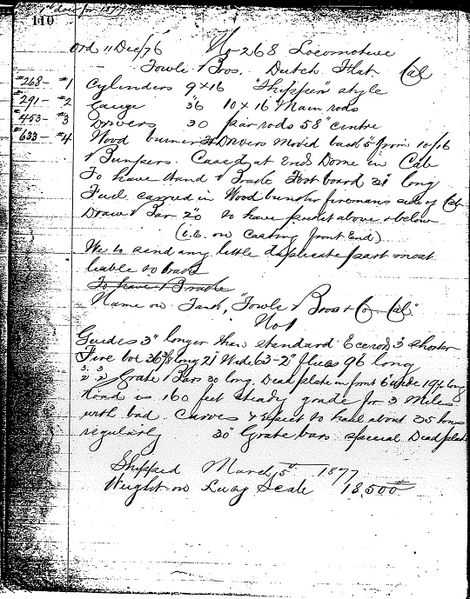 110
Ord 11 Dec/76 No 268 Locomotive
Towle Bros. Dutch Flat Cal
#268 - #1 Cylinders 9 x 16 "Shipper" style
#291 - #2 Gauge 36 10 x 16 Main rods
#453 - #3 Drivers 30 par rods 58" centre
#633 - #4 Wood burner Drivers Moved back 5" from 10/16
& Bumpers. Cased, at End Dome in Cab
To have Hand & Brake Foot board 31 long
Fuel carried in Wood bunker fireman's side of Cab
Draw Bar 20 to have pocket above & below
(i.e. on Casting front End)
We to send any little duplicate part most
liable to break
To have Brake
Name on Tank, "Towle Bros & Co Cal"
No 1
Guides 3" longer than standard Eccrods 3 shorter
Fire box 36 3/8 long 21 Wide 63 - 2" flues 96 long
Grate Bars 30 long, Dead plate in front 6 wide 19 1/2 long
Road is 160 feet steady grade for 3 Miles
with bad Curves & Expect to haul about 35 tons
regularly 30" Grate bars special Dead plate
Shipped March 5th 1877
Weight on Scale 18,500